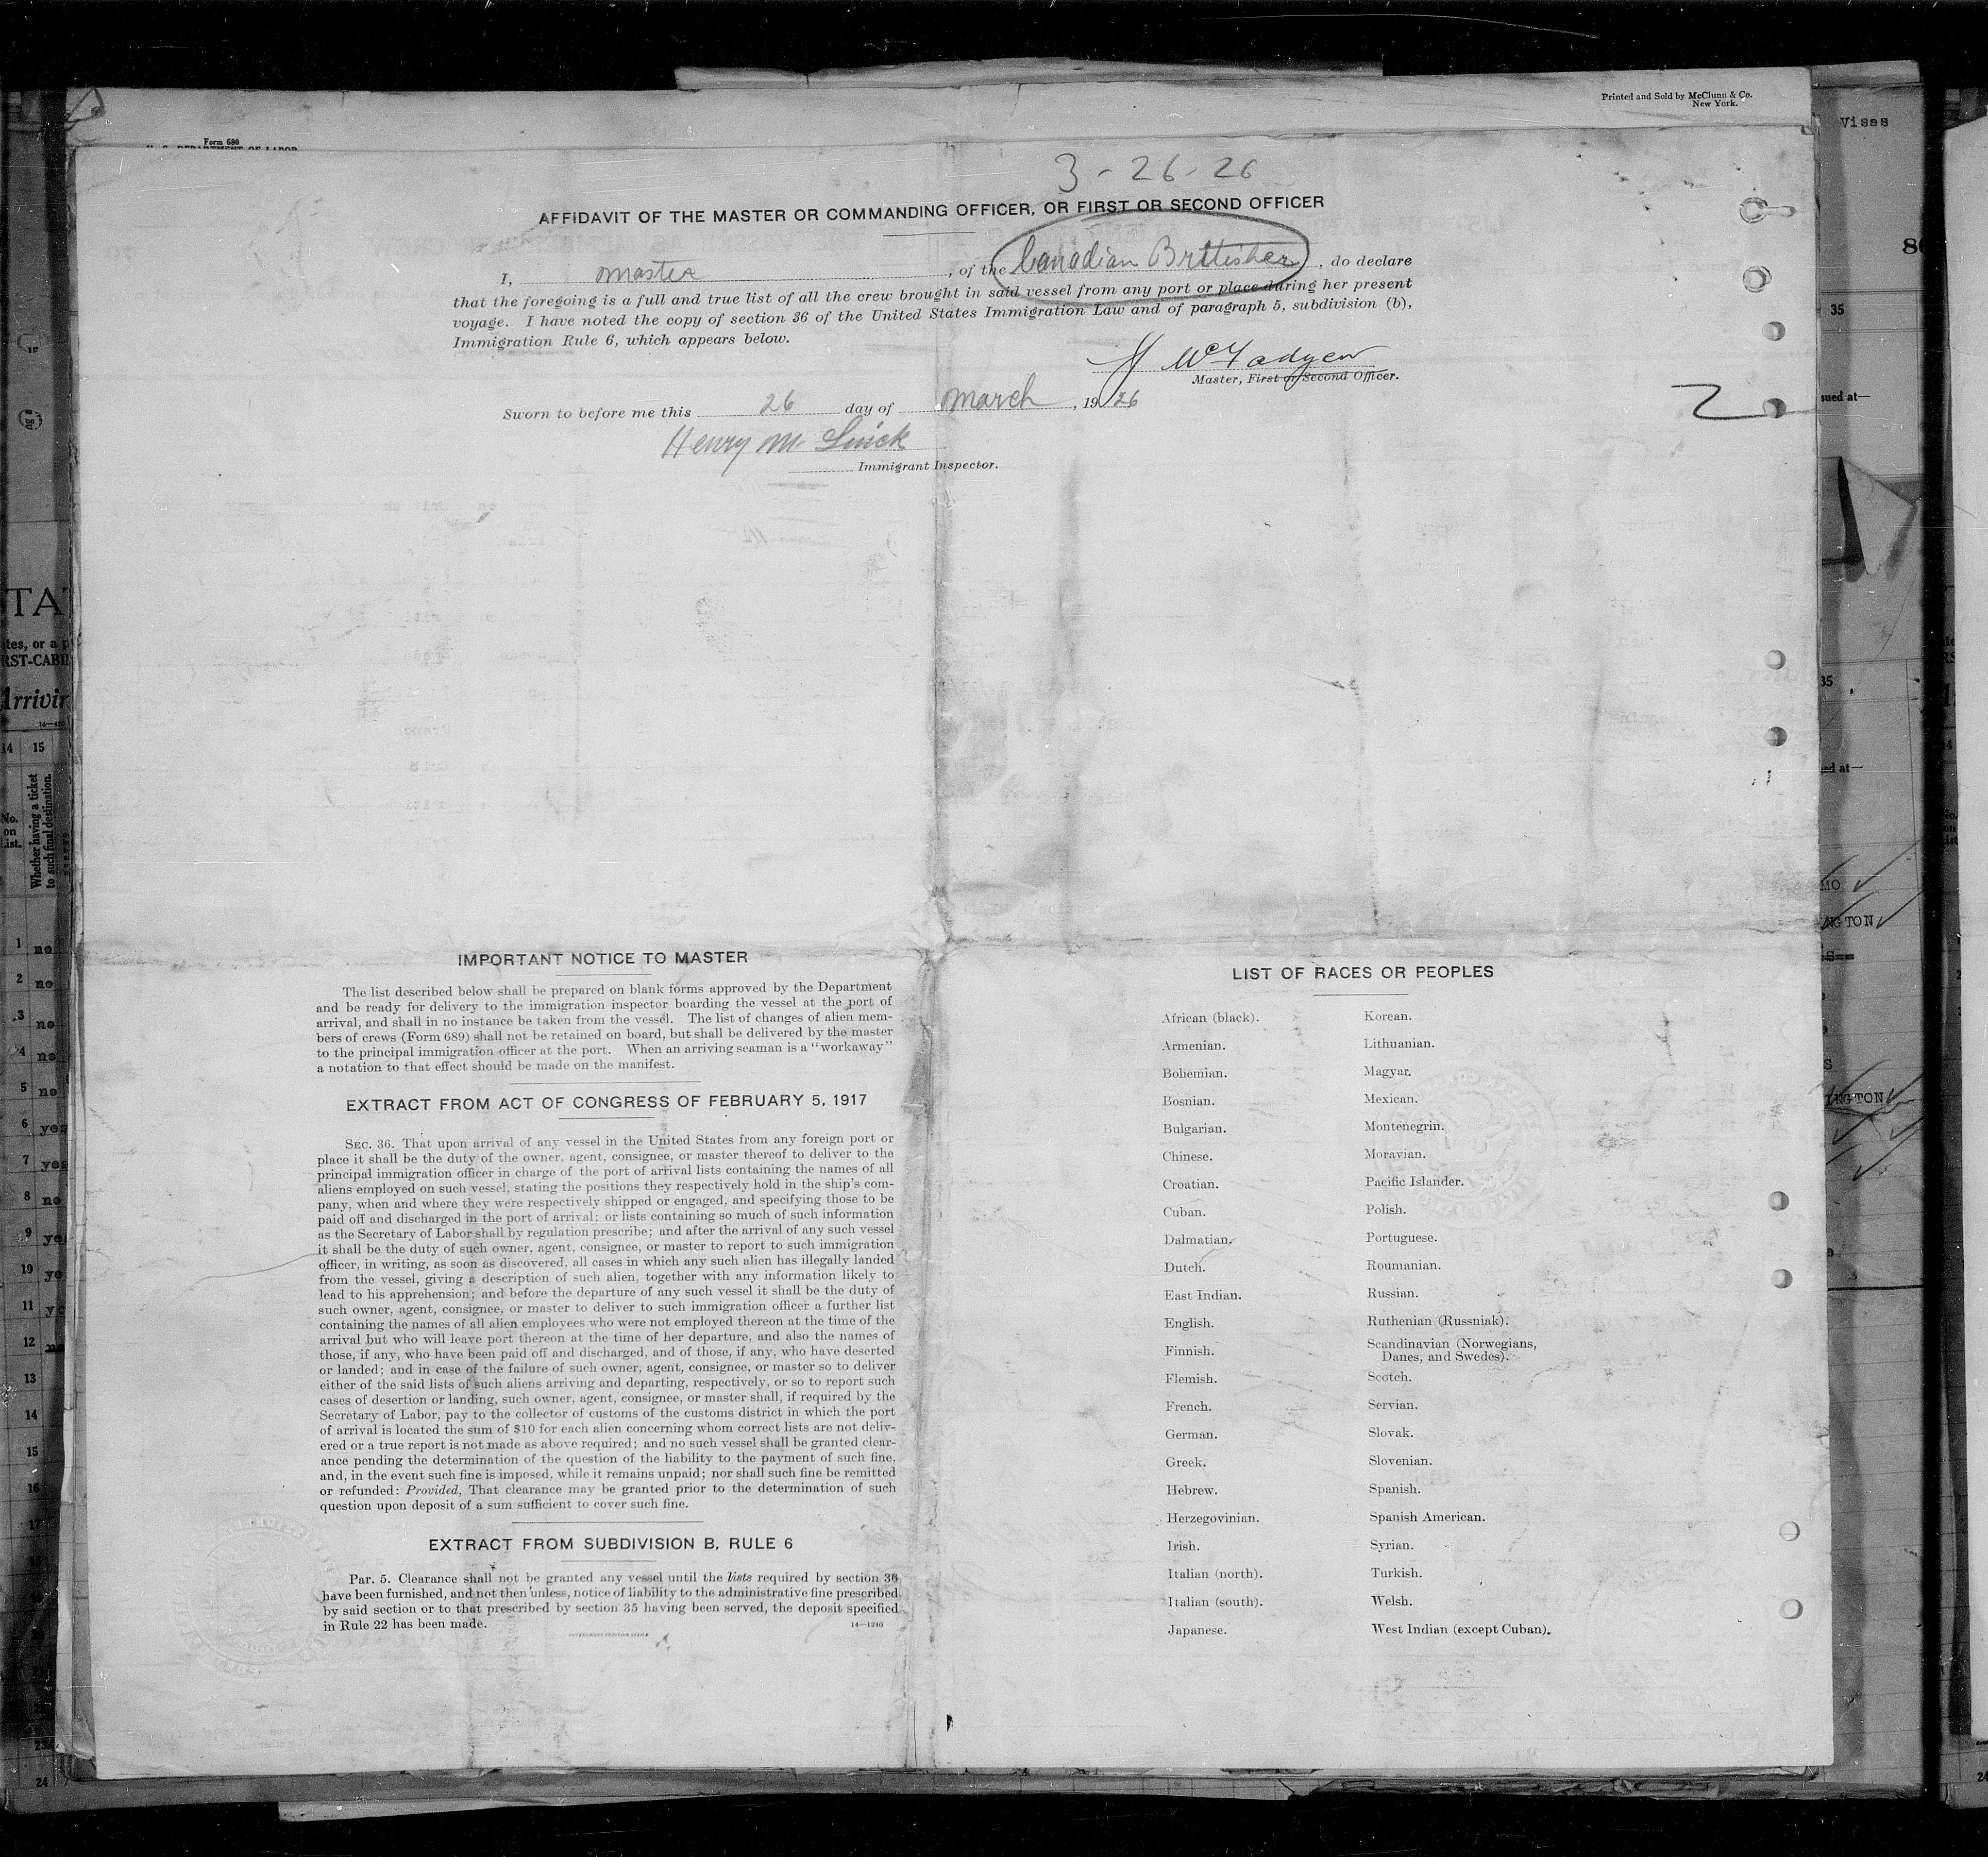 Printed and Sold by McClunn & Co.
New York.
Visas
Form 680
U. S. DEPARTMENT OF LABOR
3-26-26
AFFIDAVIT OF THE MASTER OR COMMANDING OFFICER, OR FIRST OR SECOND OFFICER
I, master, of the Canadian Britisher, do declare
that the foregoing is a full and true list of all the crew brought in said vessel from any port or place during her present
voyage. I have noted the copy of section 36 of the United States Immigration Law and of paragraph 5, subdivision (b),
Immigration Rule 6, which appears below.
Master, First or Second Officer.
Sworn to before me this 26 day of March, 1926
Henry M.
Immigrant Inspector.
IMPORTANT NOTICE TO MASTER
The list described below shall be prepared on blank forms approved by the Department
and be ready for delivery to the immigration inspector boarding the vessel at the port of
arrival, and shall in no instance be taken from the vessel. The list of changes of alien mem-
bers of crews (Form 689) shall not be retained on board, but shall be delivered by the master
to the principal immigration officer at the port. When an arriving seaman is a "workaway"
a notation to that effect should be made on the manifest.
EXTRACT FROM ACT OF CONGRESS OF FEBRUARY 5, 1917
SEC. 36. That upon arrival of any vessel in the United States from any foreign port or
place it shall be the duty of the owner, agent, consignee, or master thereof to deliver to the
principal immigration officer in charge of the port of arrival lists containing the names of all
aliens employed on such vessel, stating the positions they respectively hold in the ship's com-
pany, when and where they were respectively shipped or engaged, and specifying those to be
paid off and discharged in the port of arrival; or lists containing so much of such information
as the Secretary of Labor shall by regulation prescribe; and after the arrival of any such vessel
it shall be the duty of such owner, agent, consignee, or master to report to such immigration
officer, in writing, as soon as discovered, all cases in which any such alien has illegally landed
from the vessel, giving a description of such alien, together with any information likely to
lead to his apprehension; and before the departure of any such vessel it shall be the duty of
such owner, agent, consignee, or master to deliver to such immigration officer a further list
containing the names of all alien employees who were not employed thereon at the time of the
arrival but who will leave port thereon at the time of her departure, and also the names of
those, if any, who have been paid off and discharged, and of those, if any, who have deserted
or landed; and in case of the failure of such owner, agent, consignee, or master so to deliver
either of the said lists of such aliens arriving and departing, respectively, or so to report such
cases of desertion or landing, such owner, agent, consignee, or master shall, if required by the
Secretary of Labor, pay to the collector of customs of the customs district in which the port
of arrival is located the sum of $10 for each alien concerning whom correct lists are not deliv-
ered or a true report is not made as above required; and no such vessel shall be granted clear-
ance pending the determination of the question of the liability to the payment of such fine,
and, in the event such fine is imposed, while it remains unpaid; nor shall such fine be remitted
or refunded: Provided, That clearance may be granted prior to the determination of such
question upon deposit of a sum sufficient to cover such fine.
EXTRACT FROM SUBDIVISION B, RULE 6
Par. 5. Clearance shall not be granted any vessel until the lists required by section 36
have been furnished, and not then unless, notice of liability to the administrative fine prescribed
by said section or to that prescribed by section 35 having been served, the deposit specified
in Rule 22 has been made.
14—1240
GOVERNMENT PRINTING OFFICE
LIST OF RACES OR PEOPLES
African (black).
Armenian.
Bohemian.
Bosnian.
Bulgarian.
Chinese.
Croatian.
Cuban.
Dalmatian.
Dutch.
East Indian.
English.
Finnish.
Flemish.
French.
German.
Greek.
Hebrew.
Herzegovinian.
Irish.
Italian (north).
Italian (south).
Japanese.
Korean.
Lithuanian.
Magyar.
Mexican.
Montenegrin.
Moravian.
Pacific Islander.
Polish.
Portuguese.
Roumanian.
Russian.
Ruthenian (Russniak).
Scandinavian (Norwegians,
Danes, and Swedes).
Scotch.
Servian.
Slovak.
Slovenian.
Spanish.
Spanish American.
Syrian.
Turkish.
Welsh.
West Indian (except Cuban).